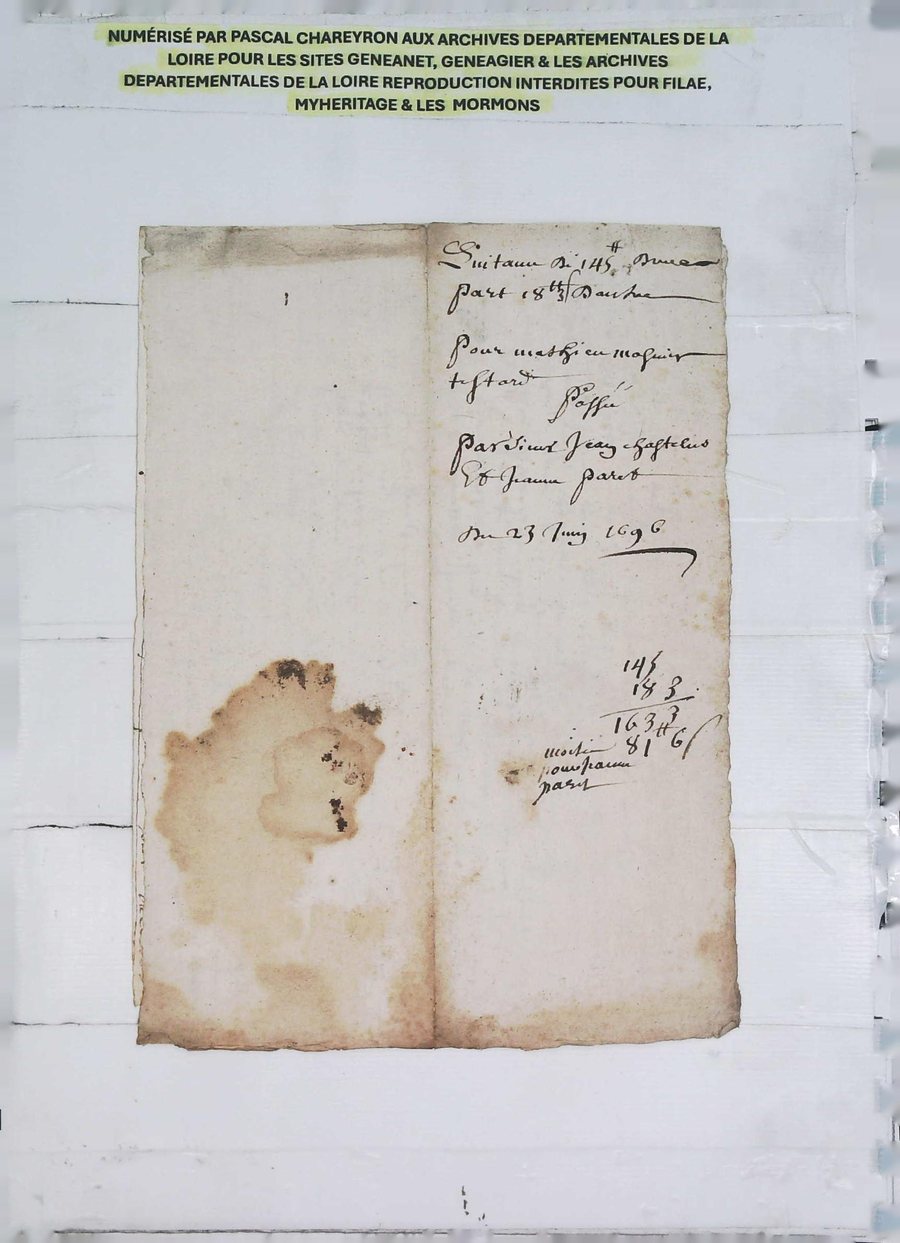 NUMÉRISÉ PAR PASCAL CHAREYRON AUX ARCHIVES DEPARTEMENTALES DE LA
LOIRE POUR LES SITES GENEANET, GENEAGIER & LES ARCHIVES
DEPARTEMENTALES DE LA LOIRE REPRODUCTION INTERDITES POUR FILAE,
MYHERITAGE & LES MORMONS
Quitance de 145# Dune
part 18# 3ſ Dautre
Pour mathieu mosnier
testard
Passé
Par Sieur Jean chastelus
Et Jeanne paret
Du 23 Juin 1696
145
18 3
163 3
moitie 81# 6ſ
pour jeanne
paret